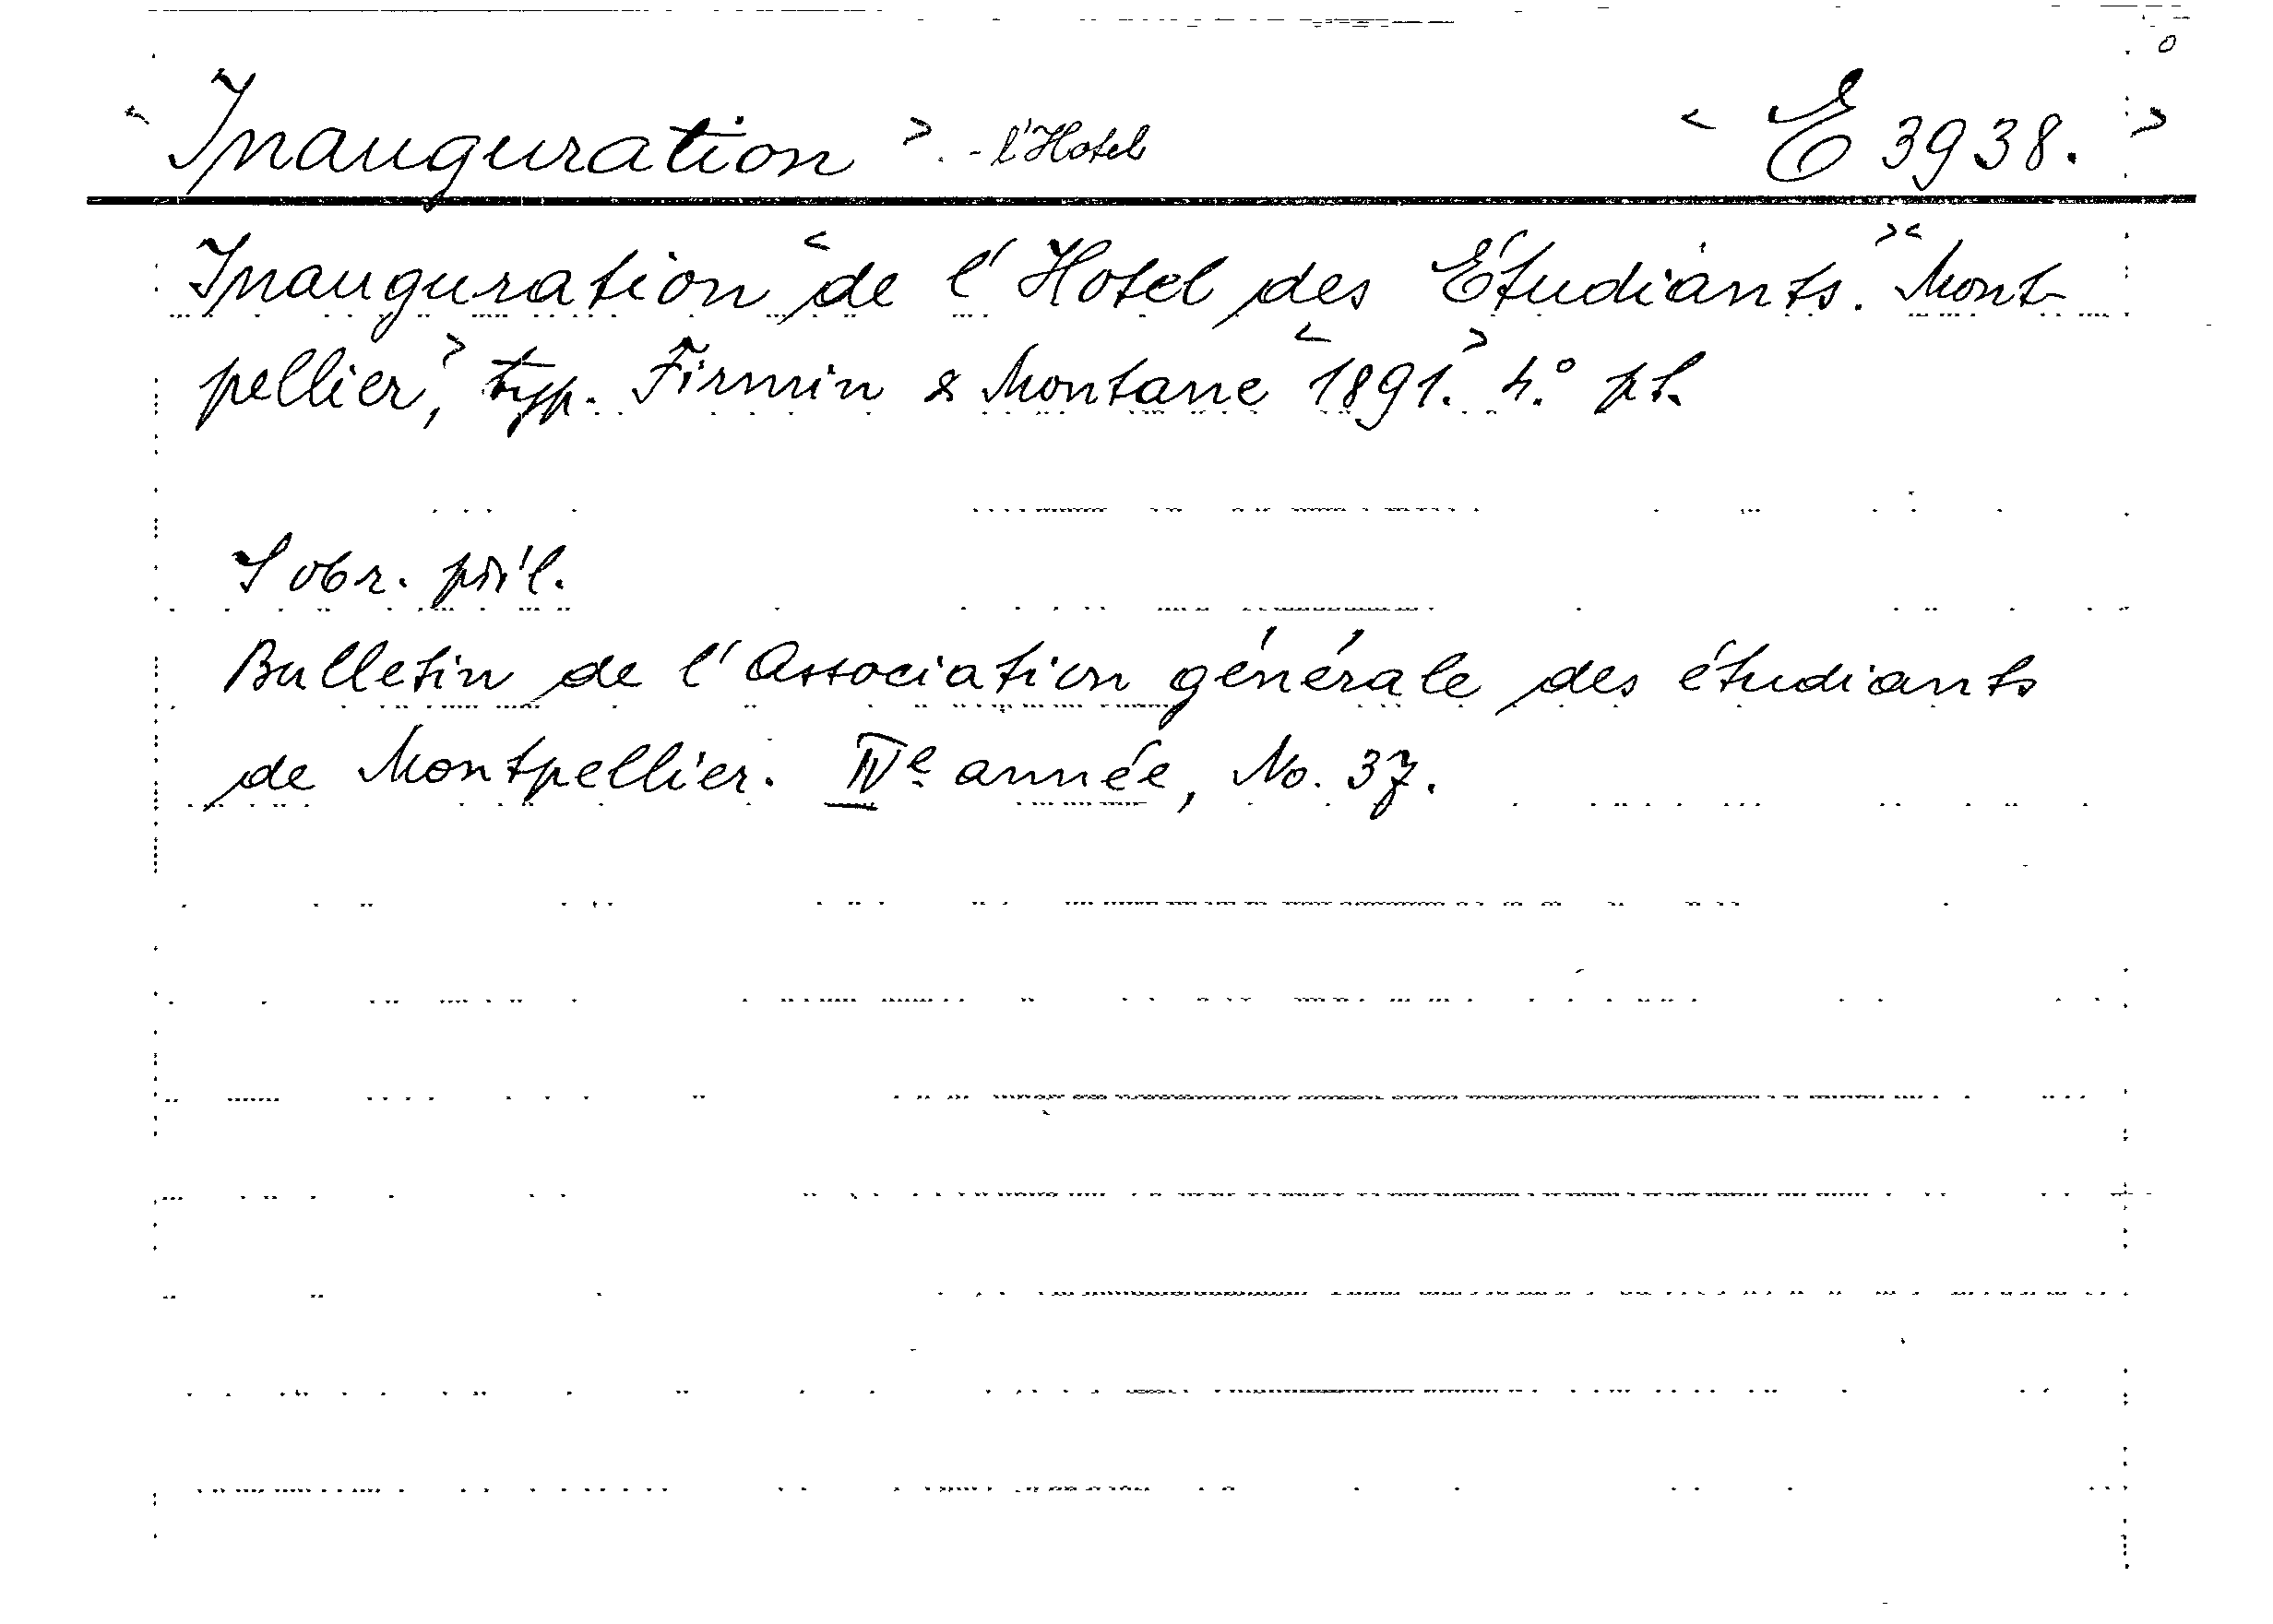 < Inauguration >. - l'Hotel < E 3938. >
Inauguration < de l' Hotel des Études. >< Mont-
pellier, > typ. Firmin & Montane < 1891. > 4.° pl.
S obr. příl.
Bulletin de l'Association générale des étudiants
de Montpellier. IVe année, No. 37.